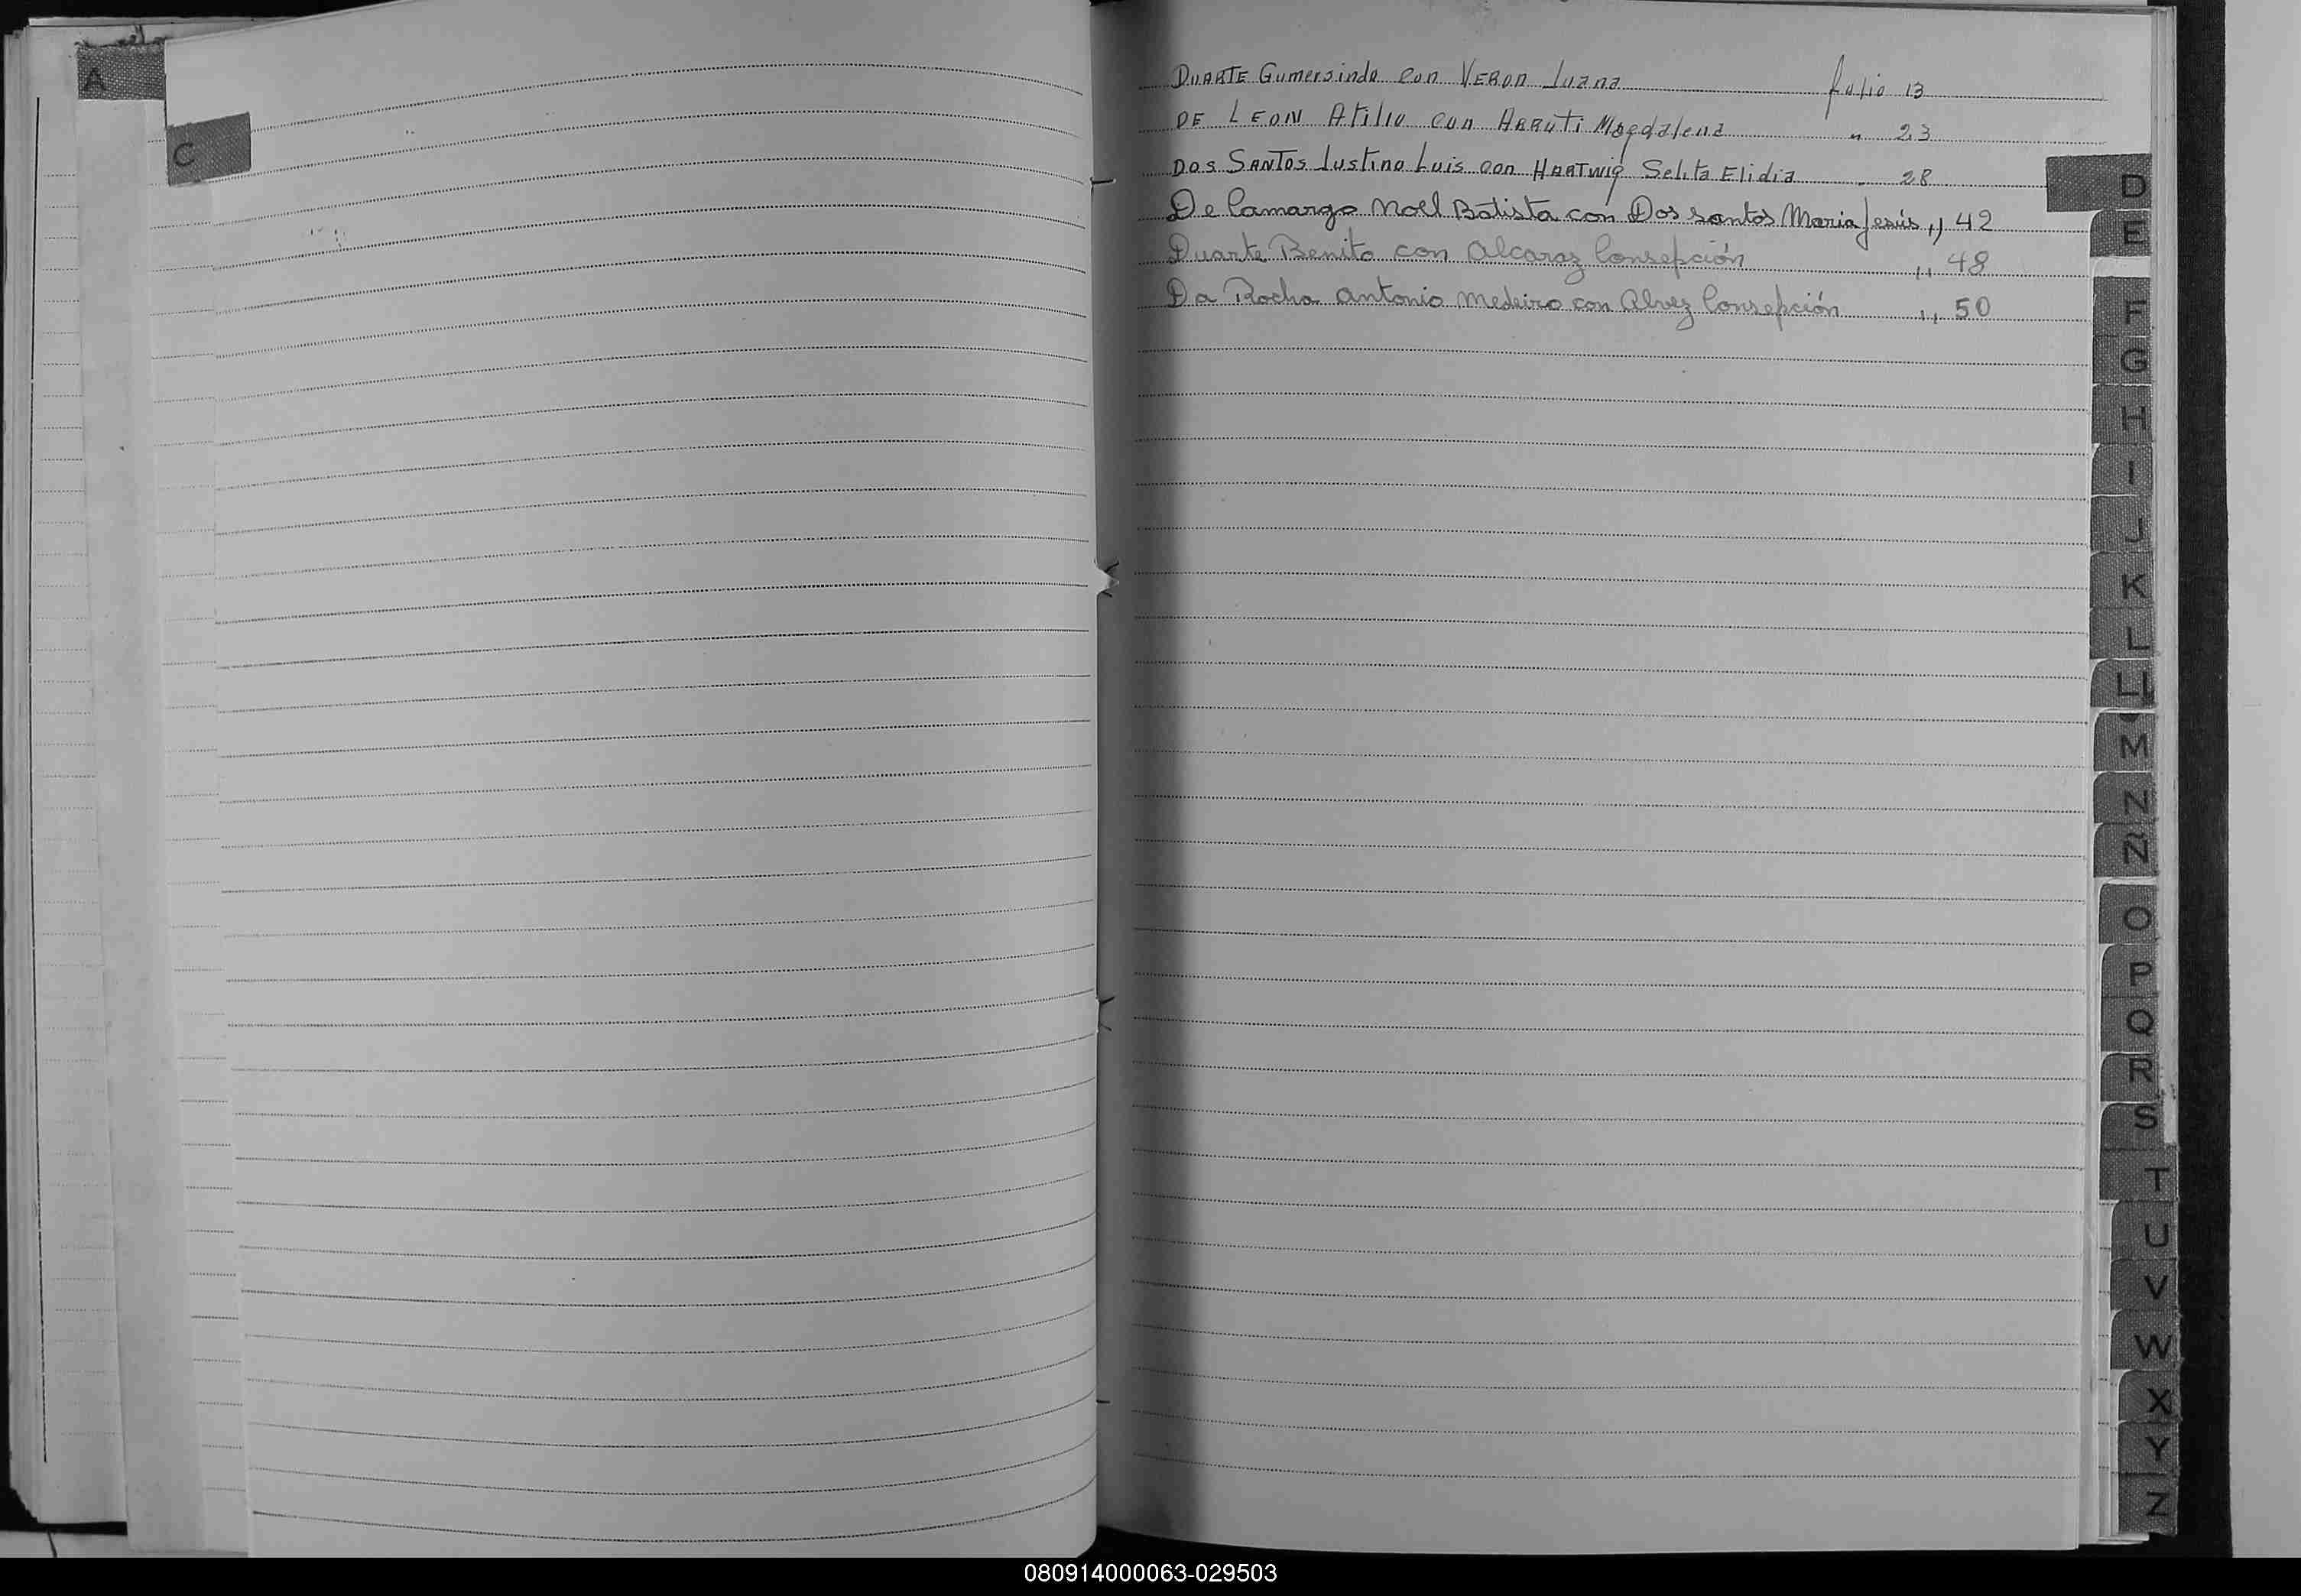 A
C
DUARTE Gumersindo con VERON Juana folio 13
DE LEON Atilio con ARRUTI Magdalena " 23
DOS SANTOS Justino Luis con HARTWIG Selita Elidia " 28
De Camargo Noel Batista con Dos santos Maria Jesús ,, 42
Duarte Benito con Alcaraz Consepción ,, 48
Da Rocha Antonio Medeiro con Alvez Consepción ,, 50
D
E
F
G
H
I
J
K
L
LL
M
N
Ñ
O
P
Q
R
S
T
U
V
W
X
Y
Z
080914000063-029503